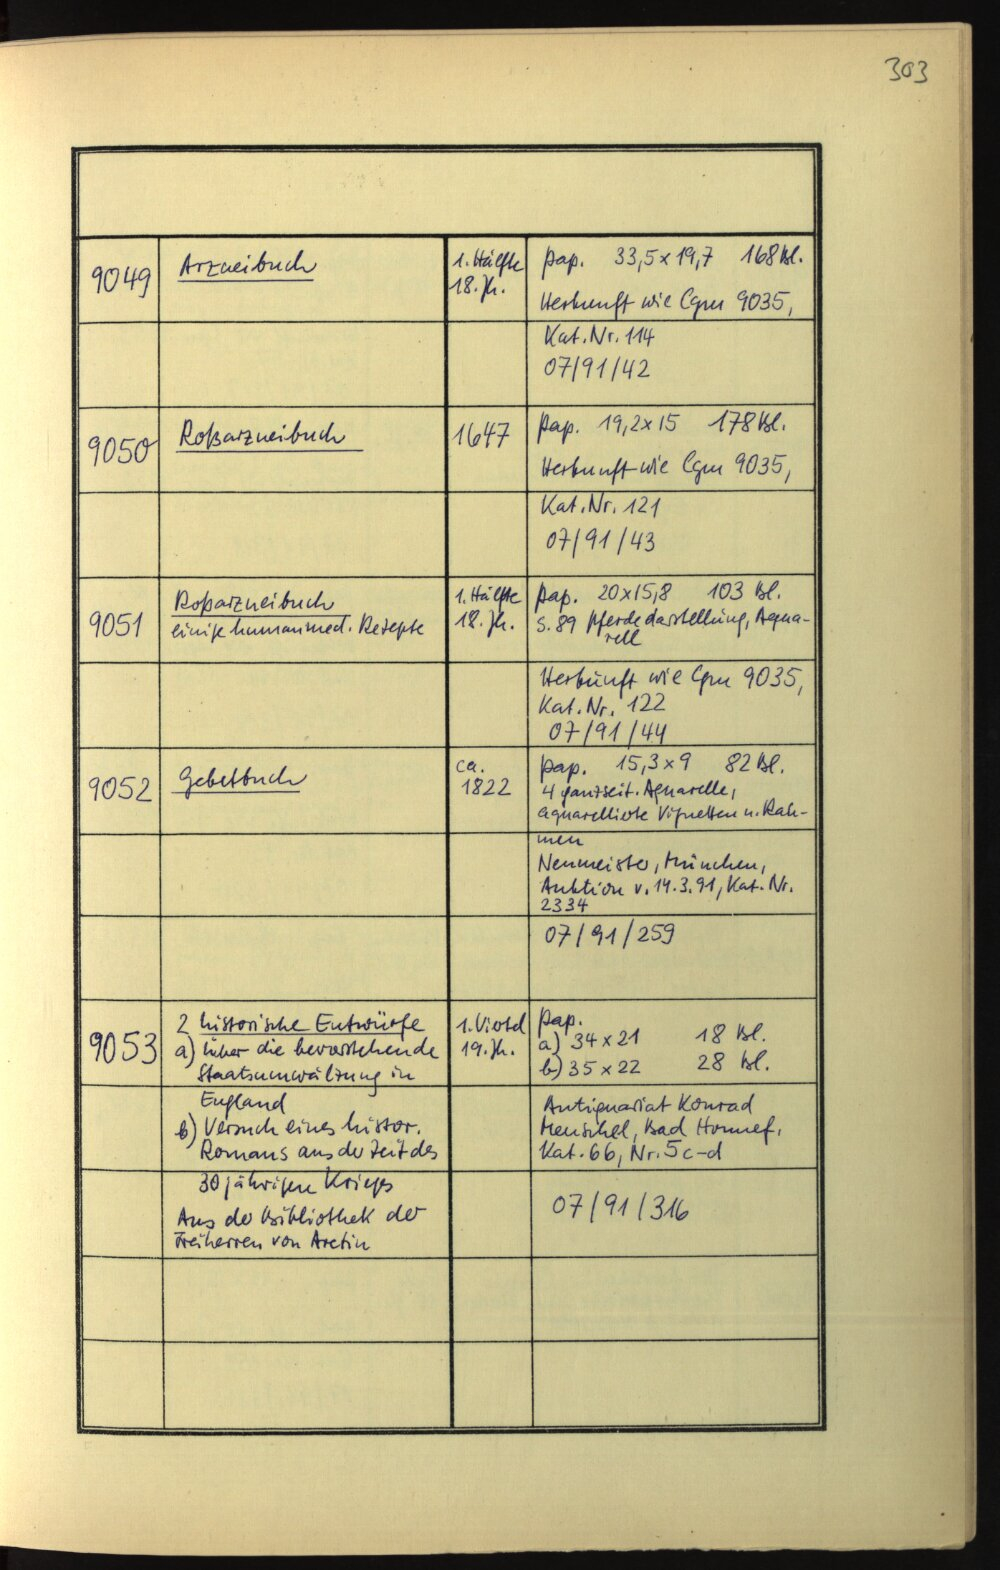 303
9049
Arzneibuch
1. Hälfte
18. Jh.
Pap. 33,5 x 19,7 168 Bl.
Herkunft wie Cgm 9035,
Kat. Nr. 114
07/91/42
9050
Roßarzneibuch
1647
Pap. 19,2 x 15 178 Bl.
Herkunft wie Cgm 9035,
Kat. Nr. 121
07/91/43
9051
Roßarzneibuch
einige humanmed. Rezepte
1. Hälfte
18. Jh.
Pap. 20 x 15,8 103 Bl.
S. 89 Pferdedarstellung, Aqua-
rell
Herkunft wie Cgm 9035,
Kat. Nr. 122
07/91/44
9052
Gebetbuch
ca.
1822
Pap. 15,3 x 9 82 Bl.
4 ganzseit. Aquarelle,
aquarellierte Vignetten u. Rah-
men
Neumeister, München,
Auktion v. 14.3.91, Kat. Nr.
2334
07/91/259
9053
2 historische Entwürfe
a) Über die bevorstehende
Staatsumwälzung in
England
b) Versuch eines histor.
Romans aus der Zeit des
30jährigen Kriegs
Aus der Bibliothek der
Freiherren von Aretin
1. Viertel
19. Jh.
Pap.
a) 34 x 21 18 Bl.
b) 35 x 22 28 Bl.
Antiquariat Konrad
Meuschel, Bad Honnef,
Kat. 66, Nr. 5 c-d
07/91/316